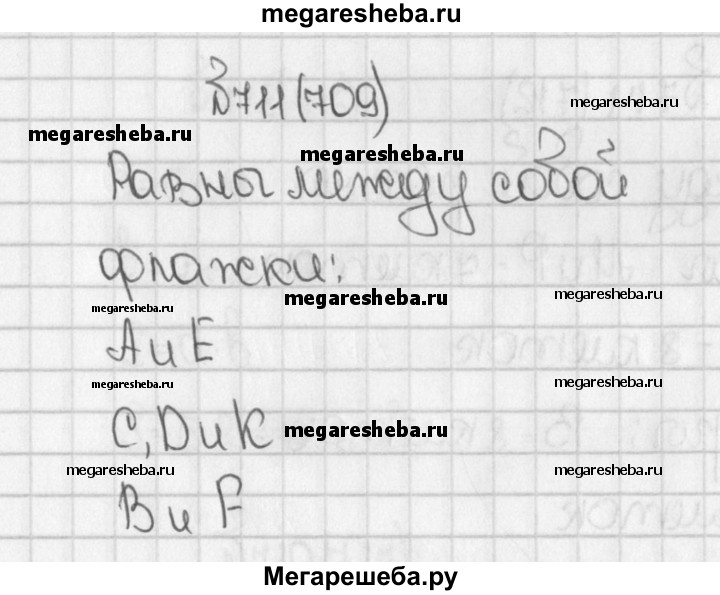 megaresheba.ru
№711(709)
megaresheba.ru
megaresheba.ru
megaresheba.ru
Равны между собой
флажки:
megaresheba.ru
megaresheba.ru
megaresheba.ru
А и Е
megaresheba.ru
megaresheba.ru
С, D и К
megaresheba.ru
megaresheba.ru
megaresheba.ru
В и F
Мегарешеба.ру